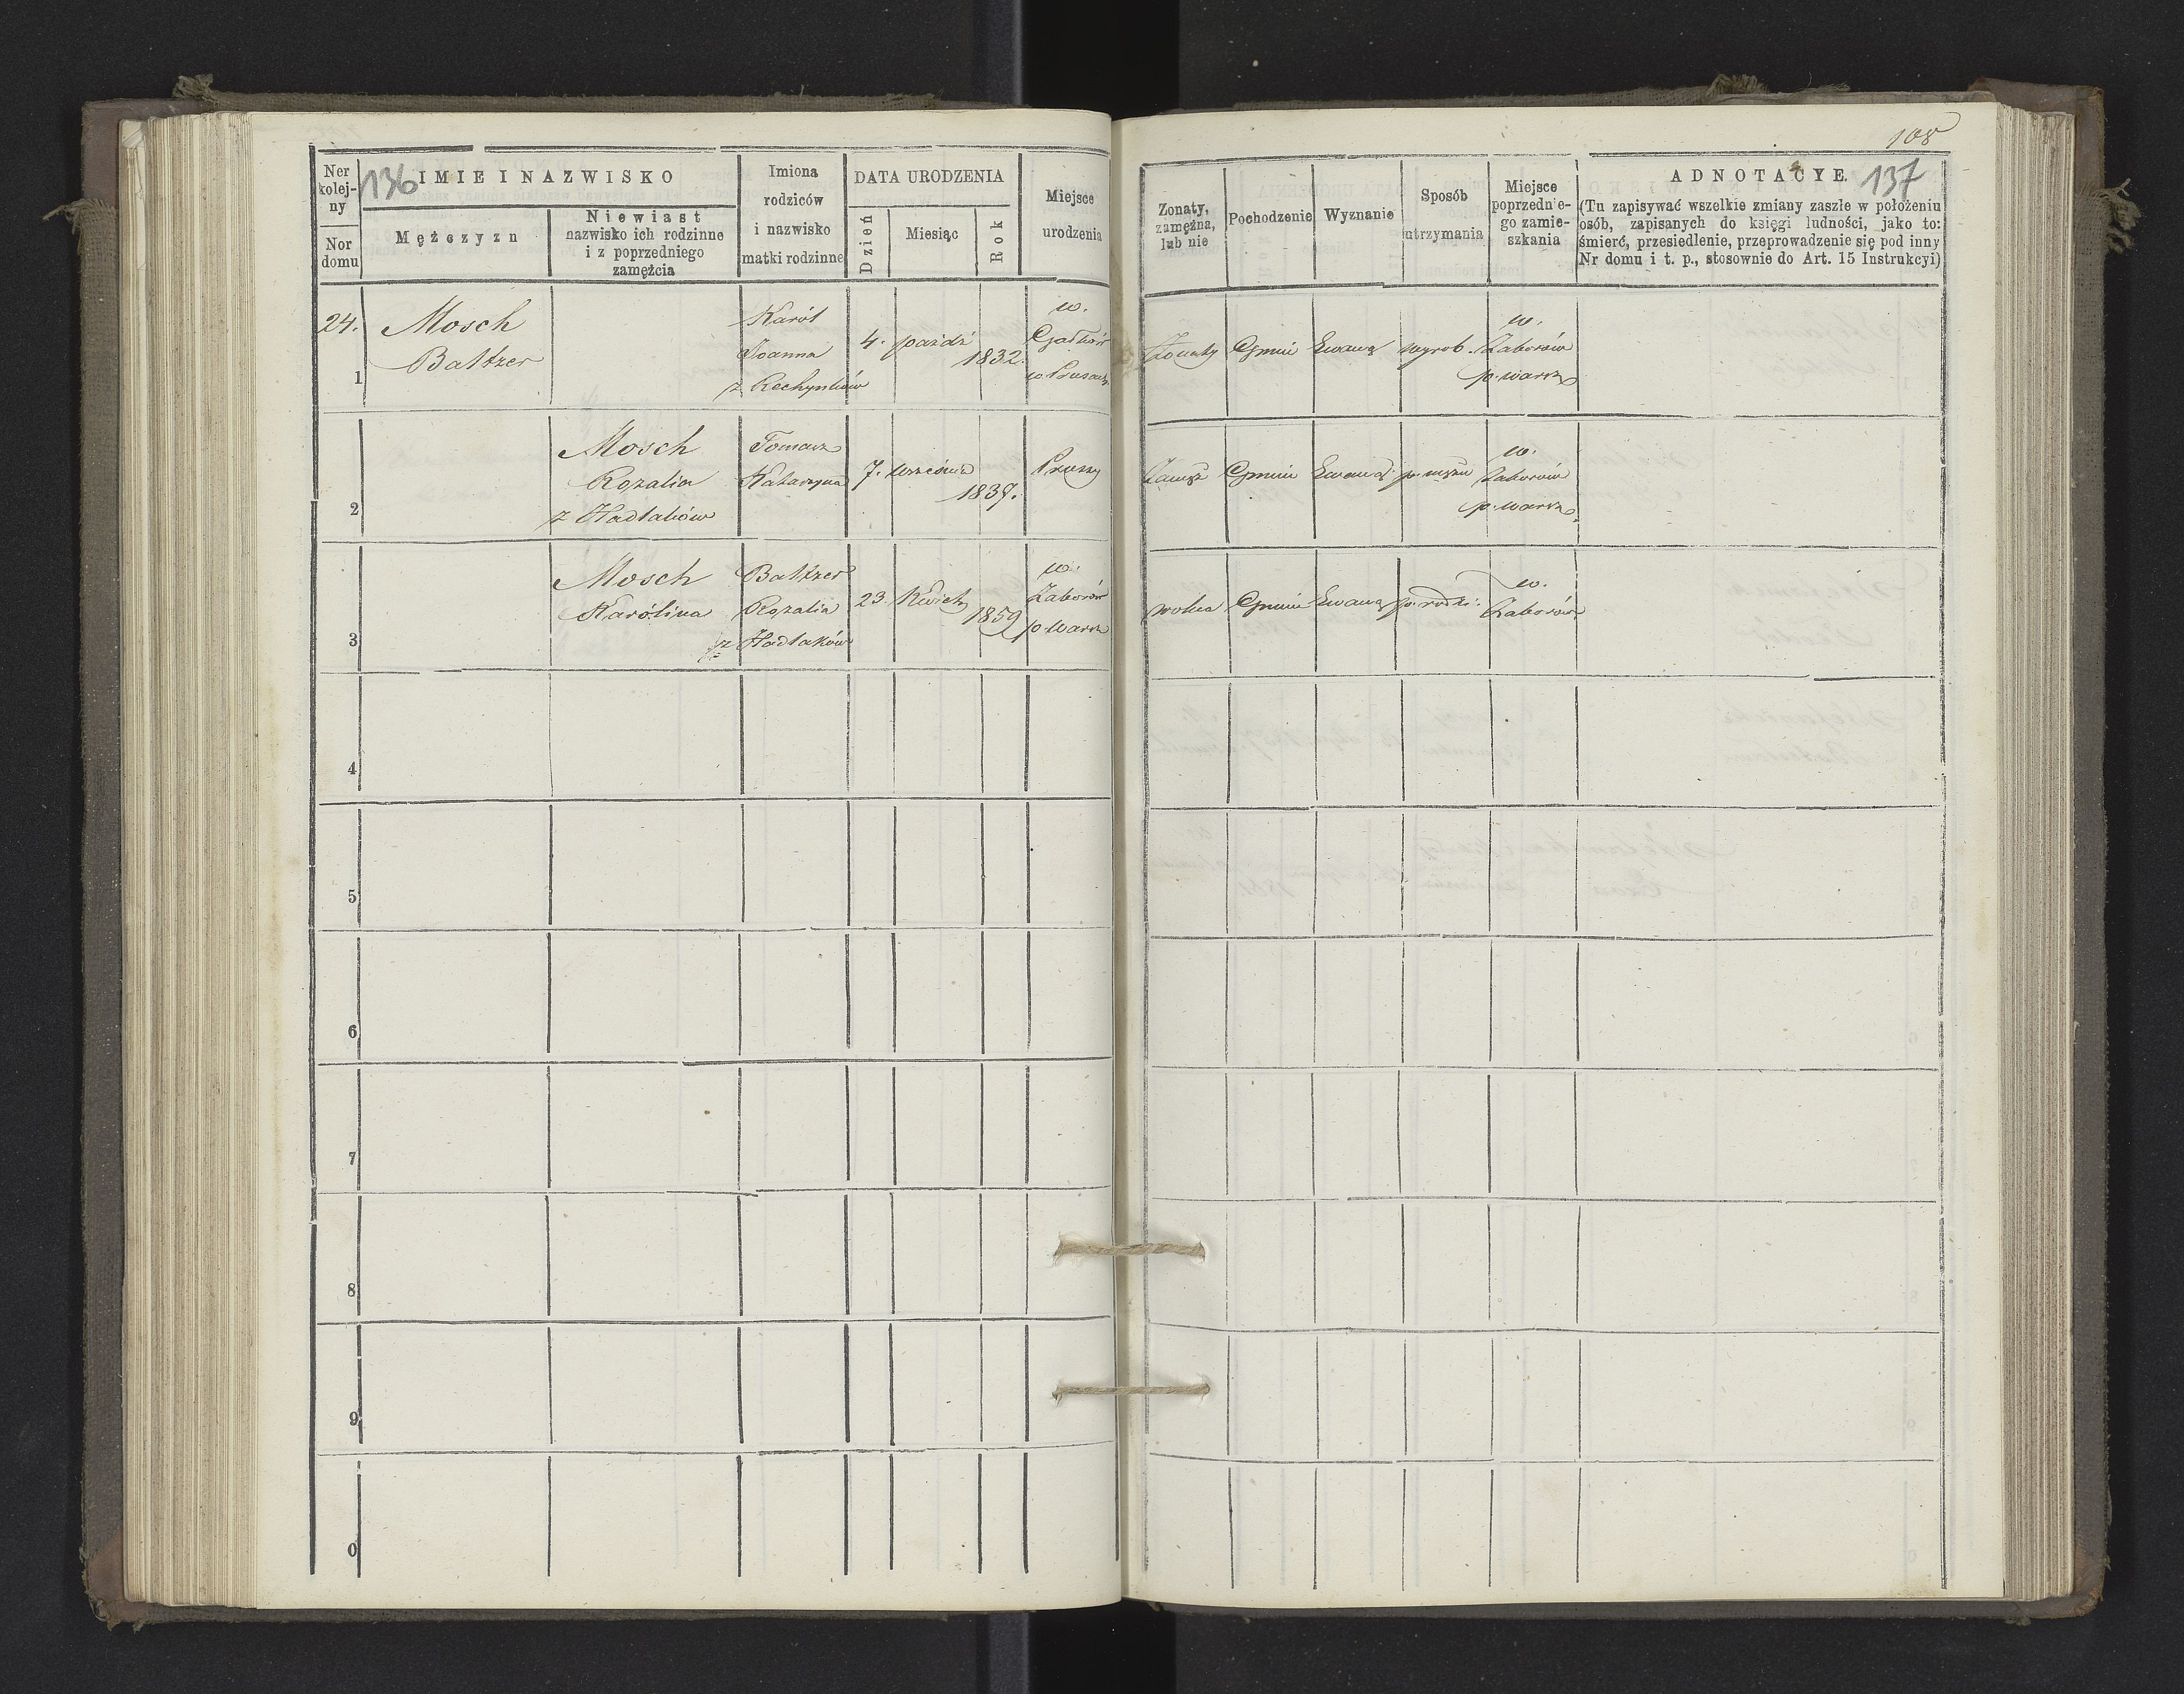 136
Ner kolej-ny
Nor domu
IMIE I NAZWISKO
Mężczyzn
Niewiast
nazwisko ich rodzinne
i z poprzedniego
zamężcia
Imiona
rodziców
i nazwisko
matki rodzinne
DATA URODZENIA
Dzień
Miesiąc
Rok
Miejsce
urodzenia
24.
1
Mosch
Baltzer
Karól
Joanna
z
4.
paźdź
1832.
w.
w Prusach
2
Mosch
Rozalia
z Hadlaków
Tomasz
Katarzyna
7.
września
1837.
Prussy
3
Mosch
Karólina
Baltzer
Rozalia
z Hadlaków
23.
Kwiet
1859
w.
Zaborów
p. warsz
4
5
6
7
8
9
0
108
137
Zonaty,
zamężna,
lub nie
Pochodzenie
Wyznanie
Sposób
utrzymania
Miejsce
poprzednie-
go zamie-
szkania
ADNOTACYE.
(Tu zapisywać wszelkie zmiany zaszłe w położeniu
osób, zapisanych do księgi ludności, jako to:
śmierć, przesiedlenie, przeprowadzenie się pod inny
Nr domu i t. p., stosownie do Art. 15 Instrukcyi)
Żonaty
Gmin
Ewang
wyrob.
w.
Zaborów
p. warsz
Zamęż
Gmin
Ewang
p. mężu
w.
Zaborów
p. warsz.
wolna
Gmin
Ewang
p. rodzi.
w.
Zaborów